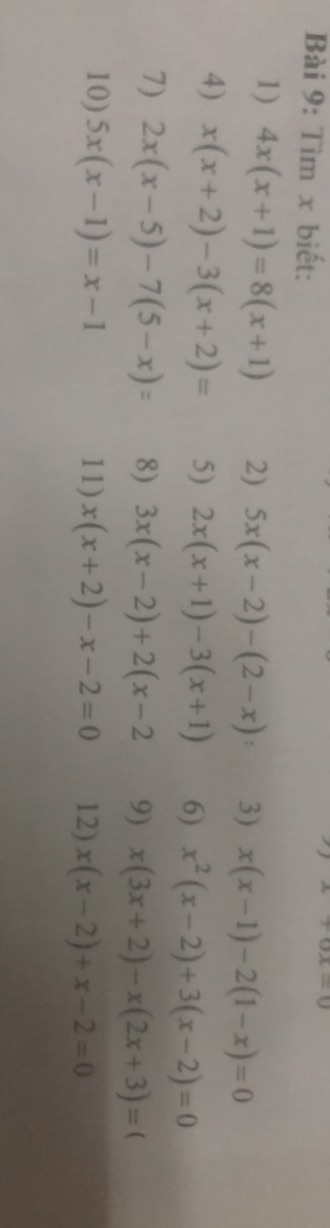 Bài 9: Tìm x biết:
1) 4x(x+1)=8(x+1) 2) 5x(x-2)-(2-x)= 3) x(x-1)-2(1-x)=0
4) x(x+2)-3(x+2)= 5) 2x(x+1)-3(x+1) 6) x²(x-2)+3(x-2)=0
7) 2x(x-5)-7(5-x)= 8) 3x(x-2)+2(x-2 9) x(3x+2)-x(2x+3)=(
10) 5x(x-1)=x-1 11) x(x+2)-x-2=0 12) x(x-2)+x-2=0